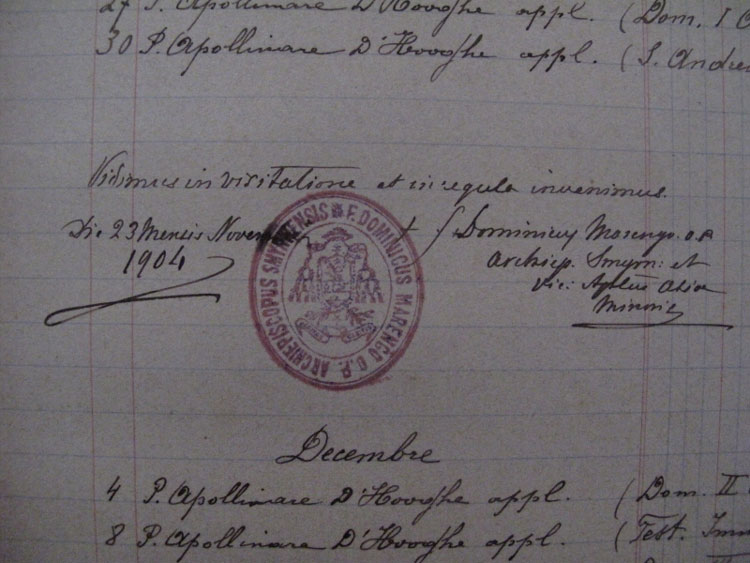 27 P. Apollinare D'Hooghe appl. (Dom. I
30 P. Apollinare D'Hooghe appl. (S. Andre
Vidimus in visitatione et in regula invenimus.
Die 23 Mensis Novembr
1904
+ f Dominicus Marengo o.p
Archiep. Smyrn: et
Vic: Aplicus Asiae
Minoris
ARCHIEPISCOPUS SMYRNENSIS F. DOMINICUS MARENGO O. P.
Decembre
4 P. Apollinare D'Hooghe appl. (Dom. II
8 P. Apollinare D'Hooghe appl. (Fest. Imm